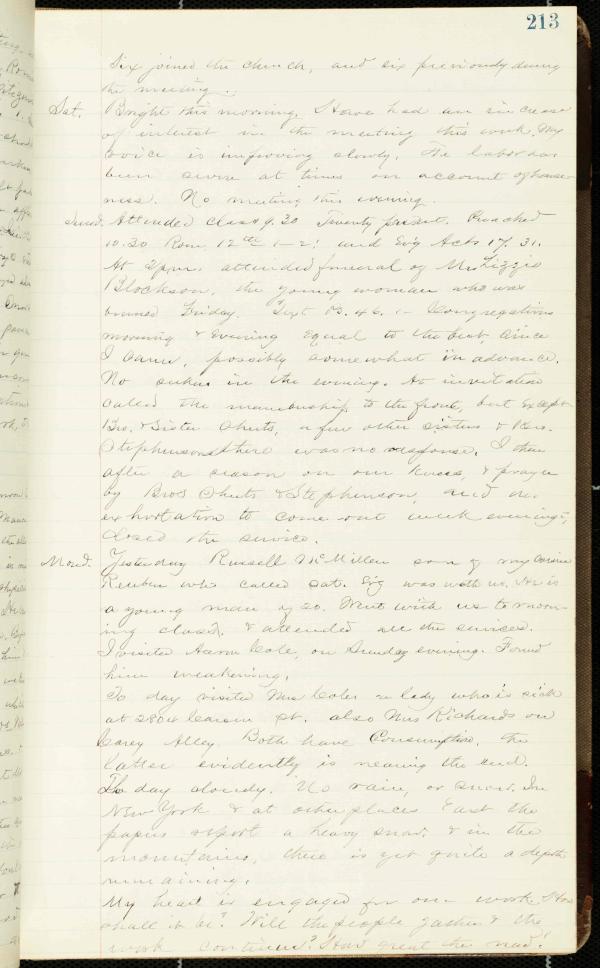 213
Six joined the church, and six previously during
the meeting.
Sat. Bright this morning. Have had an increase
of interest in the meeting this week. My
voice is improving slowly. The labor has
been severe at times on account of hoarse-
ness. No meeting this evening.
Sund. Attended class 9.30 Twenty present. Preached
10.30 Rom. 12th 1-2; and Ev'g Acts 17. 31.
At 2 pm. attended funeral of Mrs Lizzie
Blockson, the young woman who was
burned Friday. Text Ps. 46. 1- Congregations
morning & Evening Equal to the best since
I came, possibly somewhat in advance.
No seekers in the evening. At invitation
called the membership to the front, but Except
Bro. & Sister Shuts, a few other sisters & Bro.
Stephenson there was no response. I then
after a season on our knees, & prayer
by Bros Shuts & Stephenson, and an
exhortation to come out week evenings,
closed the service.
Mond. Yesterday Russell McMillen son of my cousin
Reuben who called Sat. Ev'g was with us. He is
a young man of 20. Went with us to morn-
ing class. & attended all the services.
I visited Aaron Cole, on Sunday evening. Found
him weakening.
To day visited Mrs Coler a lady who is sick
at Carson St. also Mrs Richards on
Carey Alley. Both have Consumption. The
latter evidently is nearing the end.
To day cloudy. No rain, or snow. In
New York & at other places East the
papers report a heavy snow. & in the
mountains, there is yet quite a depth
remaining.
My heart is engaged for our work. How
shall it be? Will the people gather & the
work continue? How great the need!